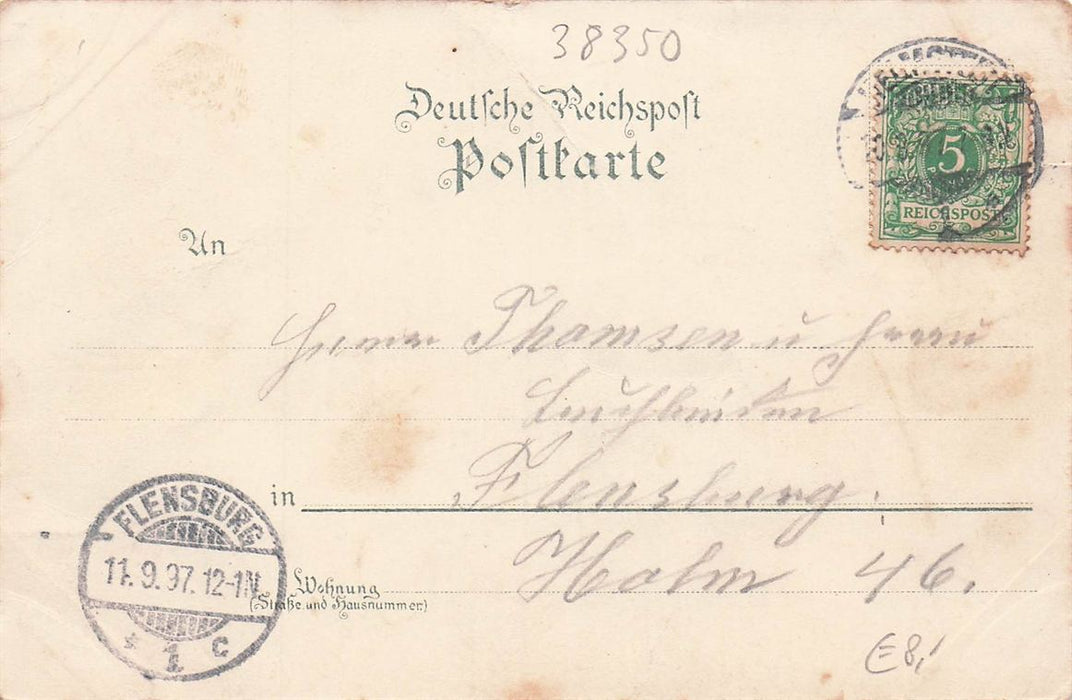 38350
Deutsche Reichspost
Postkarte
5
REICHSPOST
An
Herrn Thomsen u Frau
in Flensburg.
Wohnung
(Straße und Hausnummer)
Holm 46.
FLENSBURG
11.9.97.12-1N.
* 1. c
€8,-